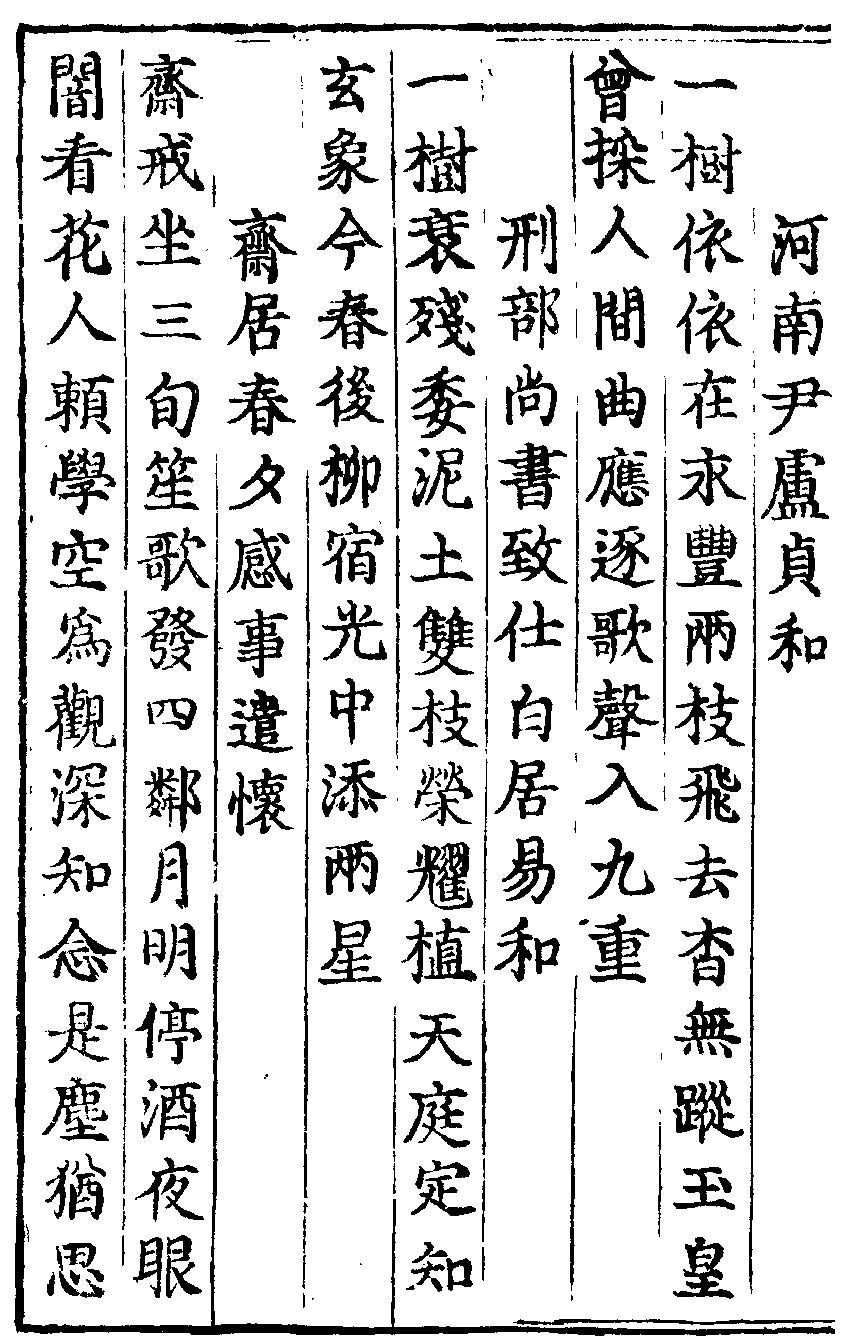 河南尹盧貞和
一樹依依在永豐兩枝飛去杳無蹤玉皇
曾採人間曲應逐歌聲入九重
刑部尚書致仕白居易和
一樹衰殘委泥土雙枝榮耀植天庭定知
玄象今春後柳宿光中添兩星
齋居春夕感事遣懷
齋戒坐三旬笙歌發四鄰月明停酒夜眼
闇看花人賴學空爲觀深知念是塵猶思